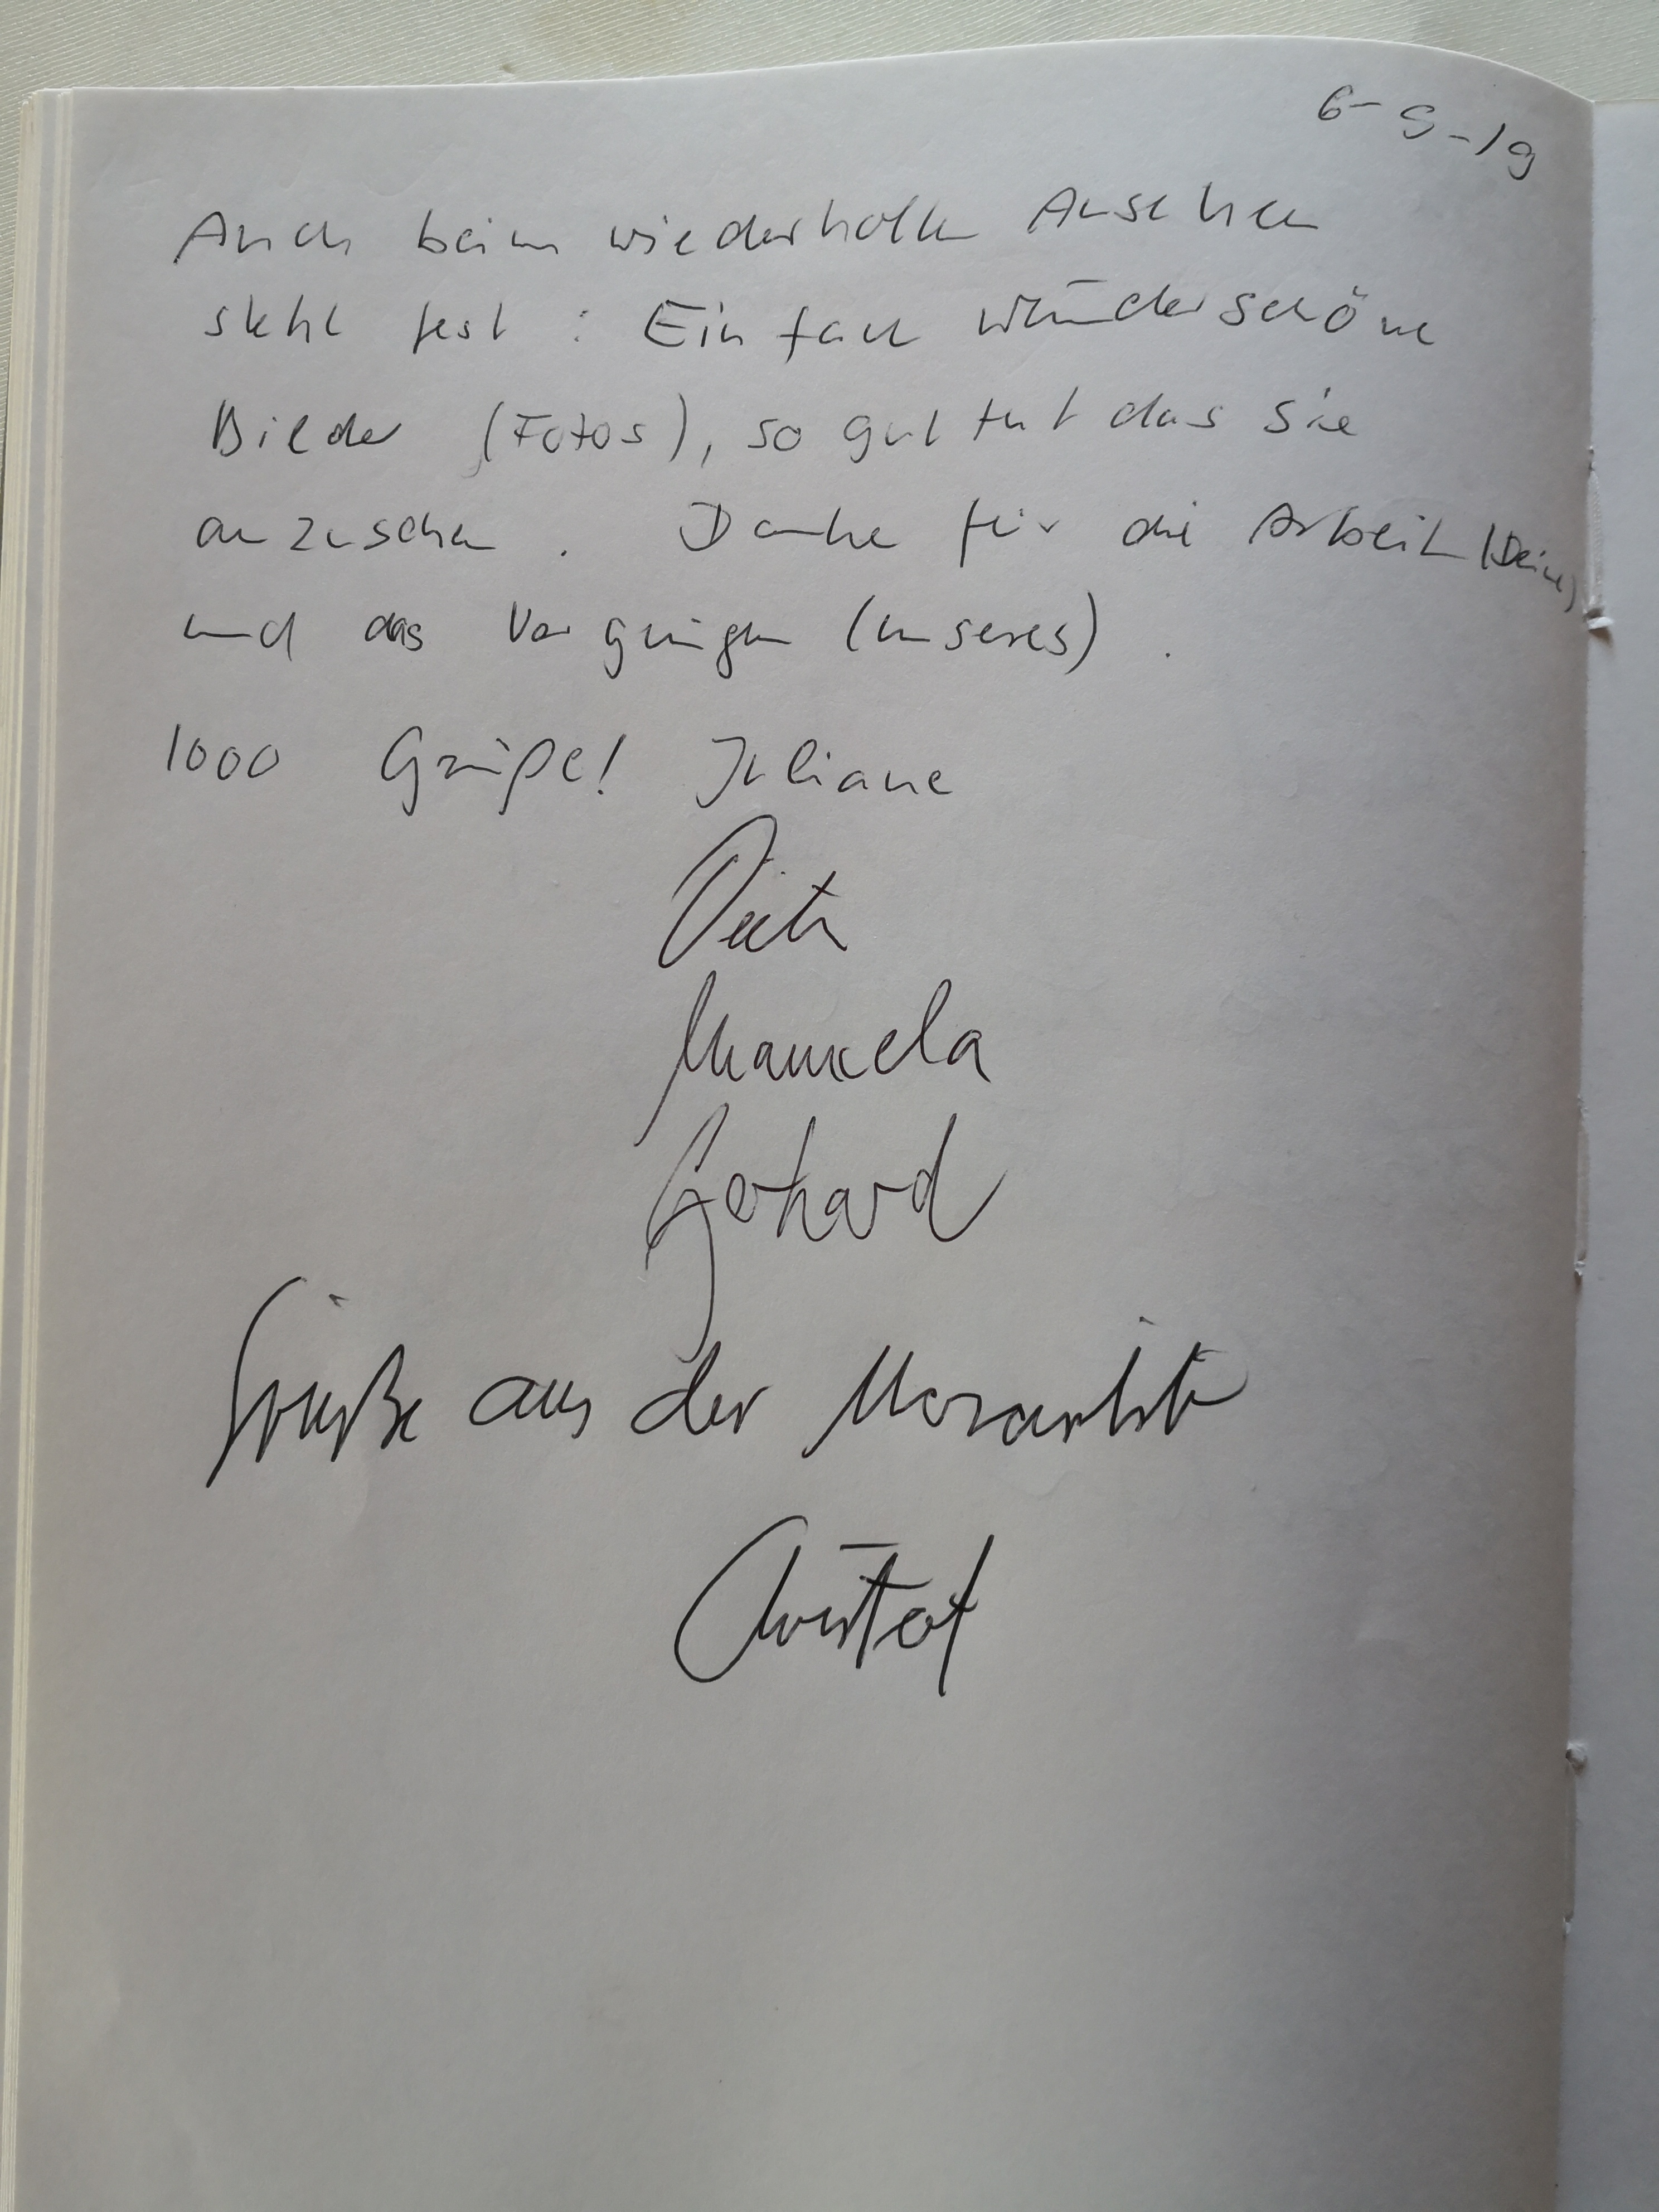 6-9-19
Auch beim wiederholten Ansehen
steht fest : Einfach wunderschöne
Bilder (Fotos), so gut tut das sie
anzusehen . Danke für die Arbeit (Deine)
und das Vergnügen (unseres) .
1000 Grüße! Juliane
Manuela
Gerhard
Grüße aus der Mozartstr
Christof